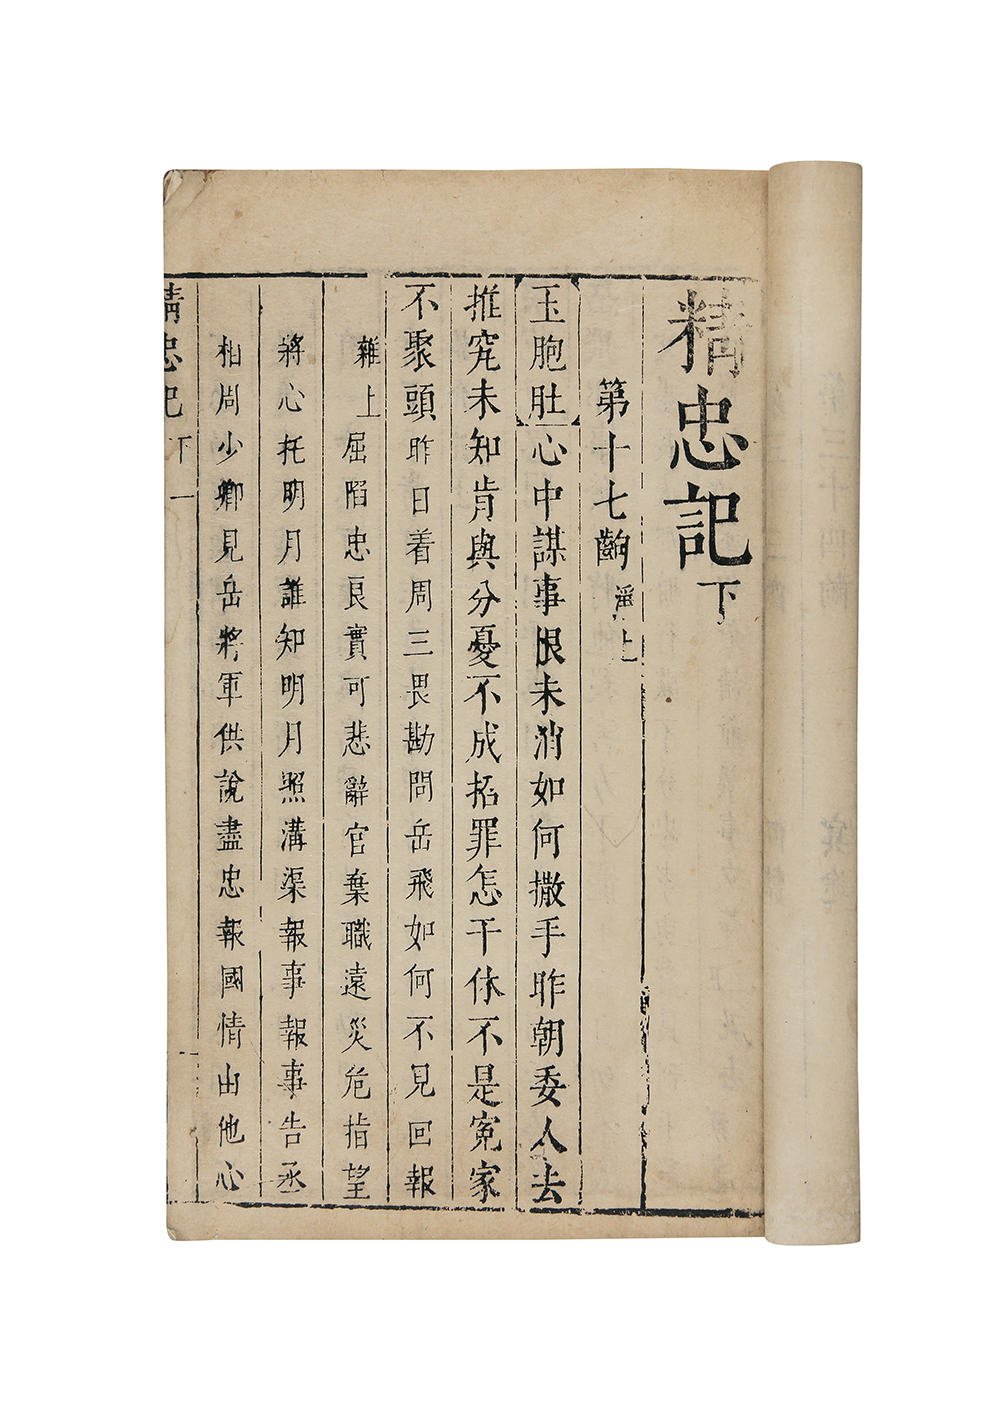 精忠記下
第十七齣 淨上
玉胞肚心中謀事恨未消如何撒手昨朝委人去
推究未知肯與分憂不成招罪怎干休不是冤家
不聚頭昨日着周三畏勘問岳飛如何不見回報
雜上屈陷忠良實可悲辭官棄職遠災危指望
將心托明月誰知明月照溝渠報事報事告丞
相周少卿見岳將軍供說盡忠報國情由他心
精忠記 下 一